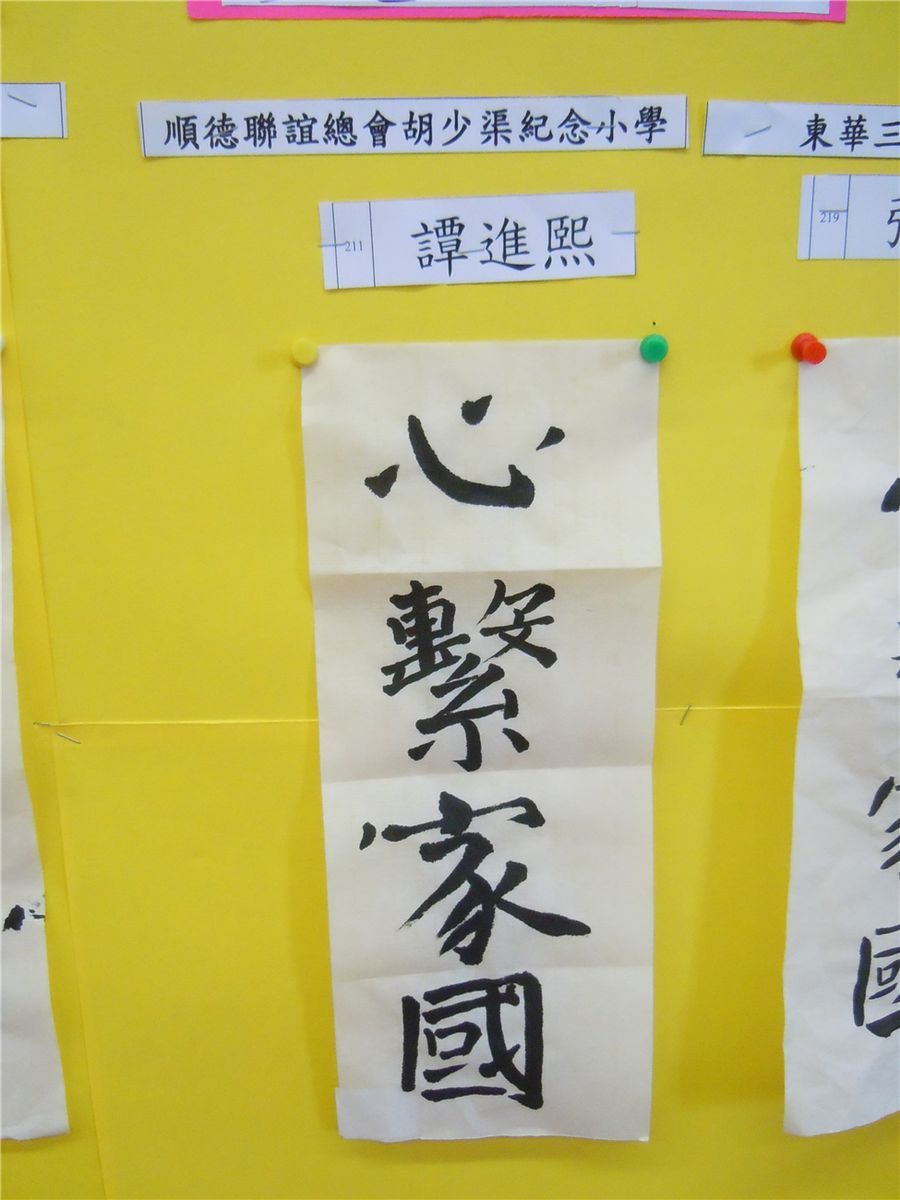 順德聯誼總會胡少渠紀念小學
東華三
211
譚進熙
219
心繫家國
家國